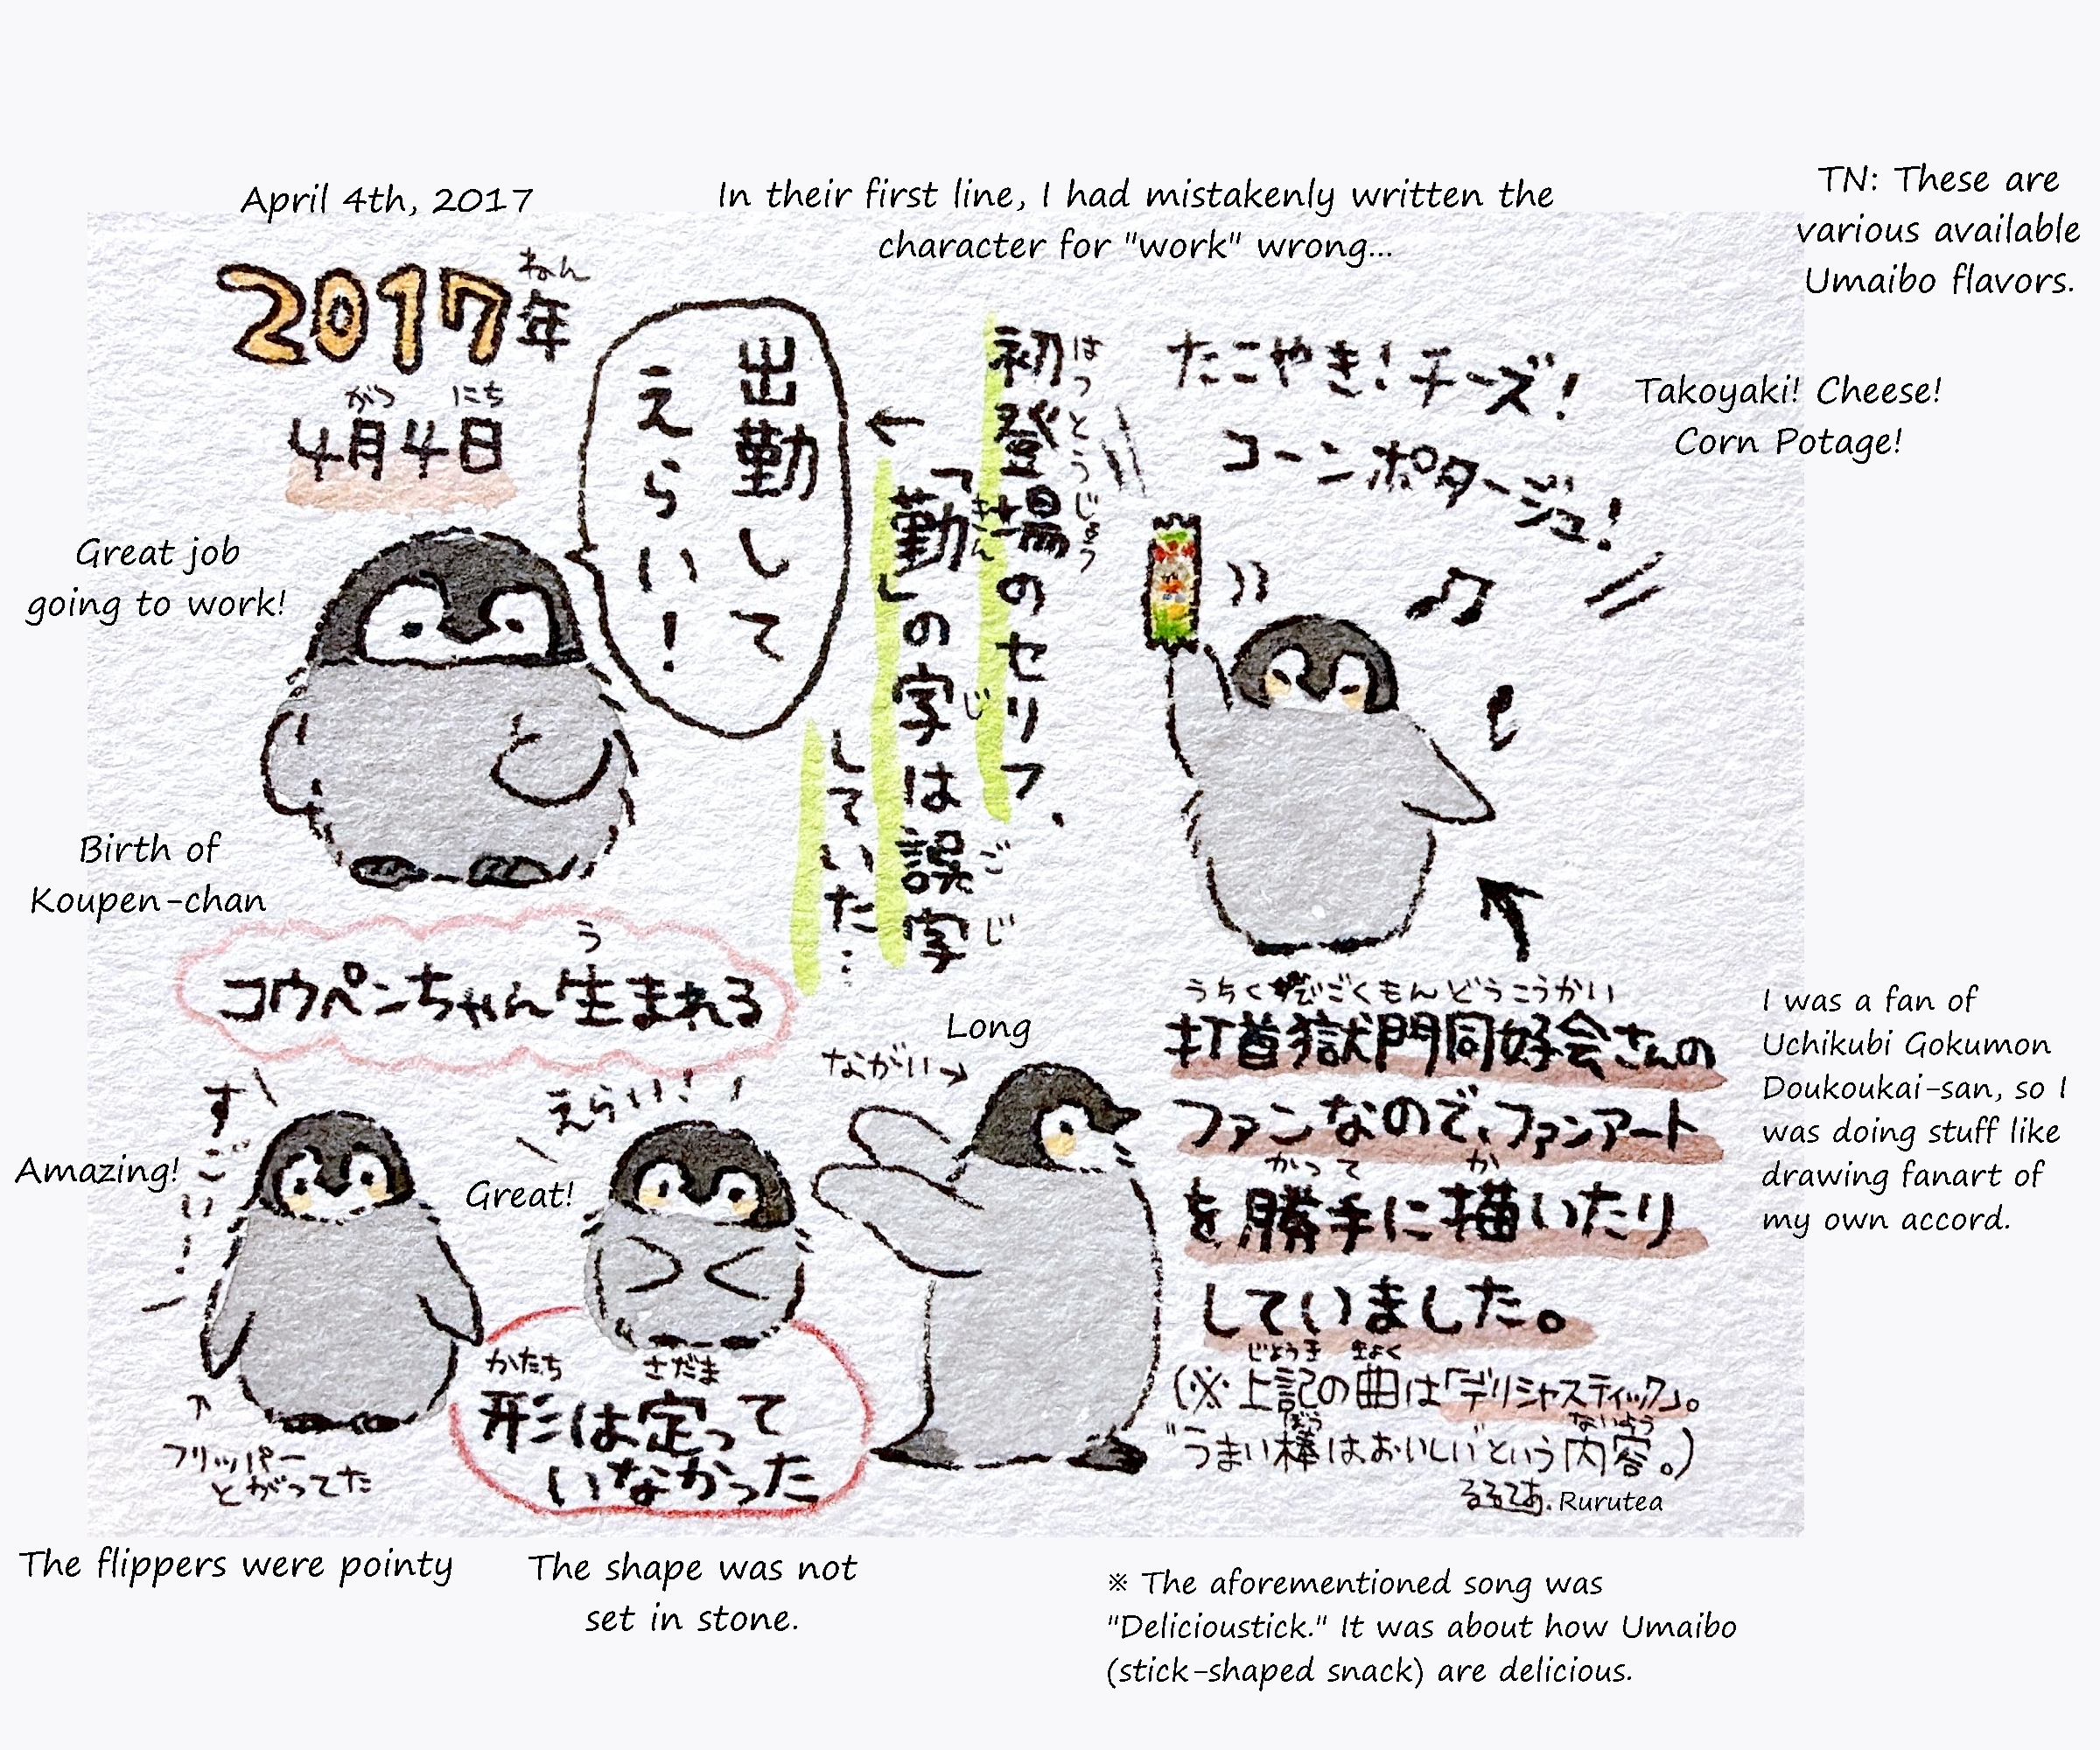 April 4th, 2017
In their first line, I had mistakenly written the
character for "work" wrong...
TN: These are
various available
Umaibo flavors.
2017年
ねん
がつ にち
4月4日
出勤して
えらい!
←
はつとうじょう
初登場のセリフ、
きん じ ご じ
「勤」の字は誤字
していた…
たこやき!チーズ!
コーンポタージュ!
Takoyaki! Cheese!
Corn Potage!
Great job
going to work!
Birth of
Koupen-chan
う
コウペンちゃん生まれる
すごい!
Amazing!
えらい!
Great!
Long
ながい→
↑
フリッパー
とがってた
かたち さだま
形は定って
いなかった
うちくびごくもんどうこうかい
打首獄門同好会さんの
ファンなので、ファンアート
かって か
を勝手に描いたり
していました。
じょうき きょく
(※上記の曲は「デリシャスティック」。
ぼう ないよう
"うまい棒はおいしい"という内容。)
るるてあ. Rurutea
I was a fan of
Uchikubi Gokumon
Doukoukai-san, so I
was doing stuff like
drawing fanart of
my own accord.
The flippers were pointy
The shape was not
set in stone.
※ The aforementioned song was
"Delicioustick." It was about how Umaibo
(stick-shaped snack) are delicious.